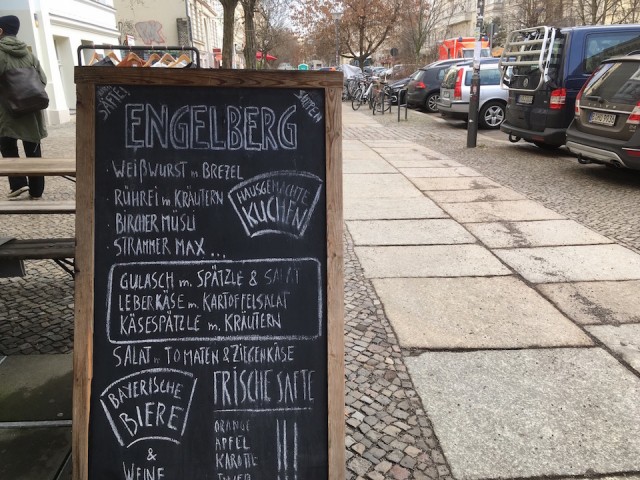 SÄFTE!
STULLEN
ENGELBERG
· WEIẞWURST m BREZEL
· RÜHREI m KRÄUTERN
· BIRCHER MÜSLI
· STRAMMER MAX ...
HAUSGEMACHTE
KUCHEN
GULASCH m. SPÄTZLE & SALAT
LEBERKÄSE m. KARTOFFELSALAT
KÄSESPÄTZLE m. KRÄUTERN
SALAT m TOMATEN & ZIEGENKÄSE
BAYERISCHE
BIERE
& WEINE
FRISCHE SÄFTE
ORANGE
APFEL
KAROTTE
INGWER